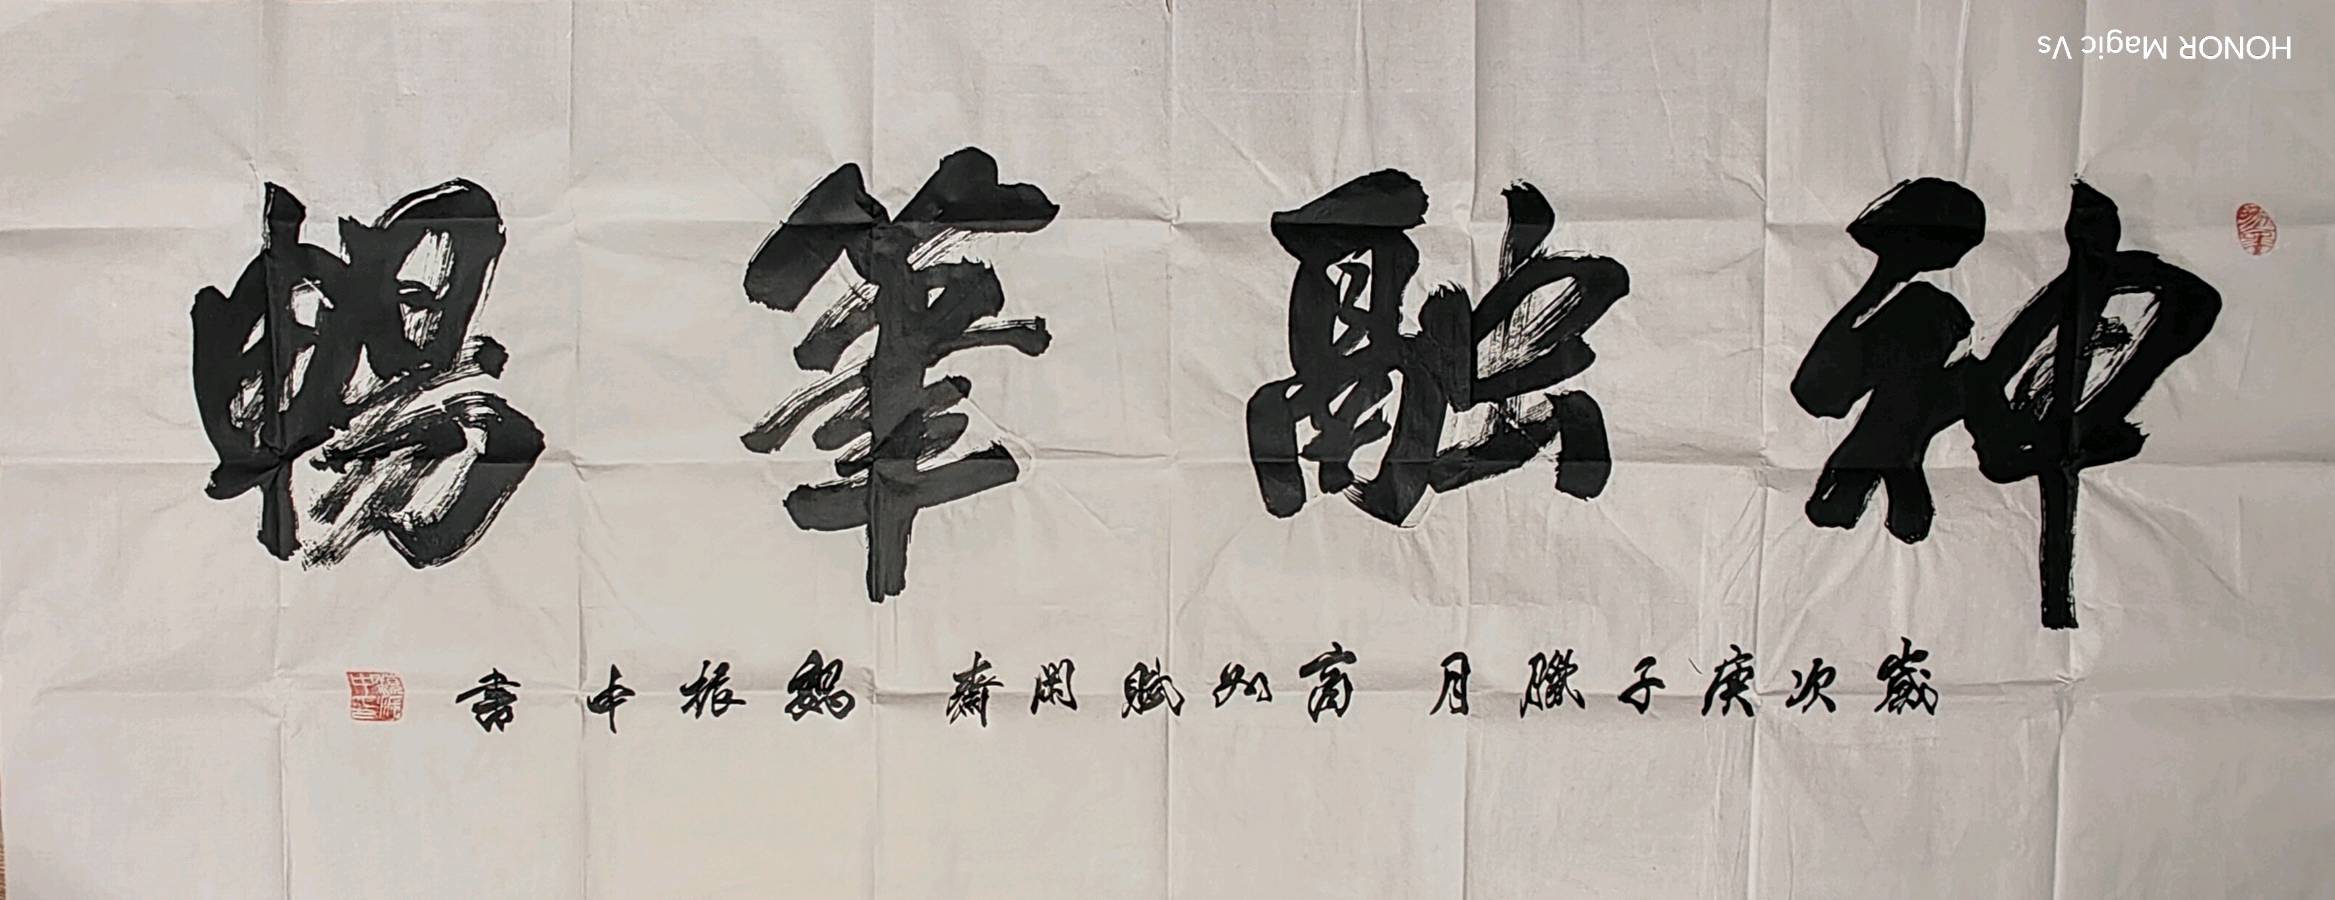 神融筆暢
歲次庚子臘月 齋如賦閑齋 魏振中書
HONOR Magic Vs